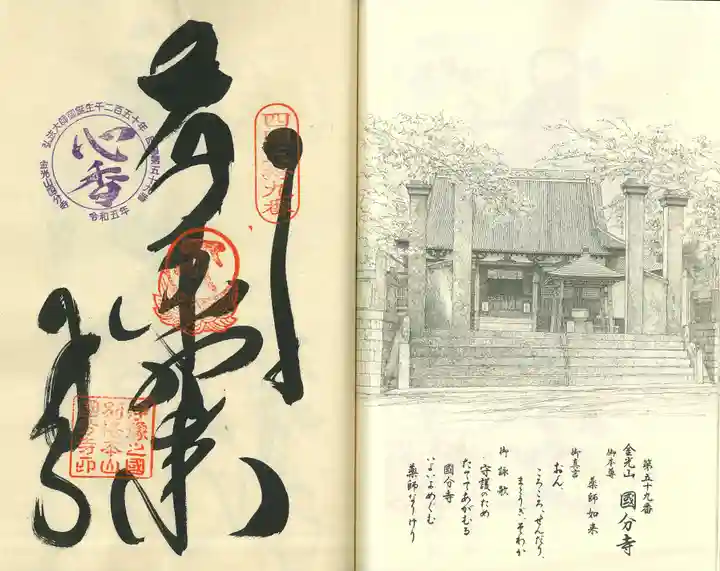 弘法大師御誕生千二百五十年
四國第五十九番
心香
金光山国分寺
令和五年
四國五十九番
奉納
薬師如来
伊豫之國
別格本山
國分寺印
第五十九番
金光山 國分寺
御本尊
薬師如来
御真言
おん、
ころころ、せんだり、
まとうぎ、そわか
御詠歌
守護のため
たててあがむる
國分寺
いよいよめぐむ
薬師なりけり